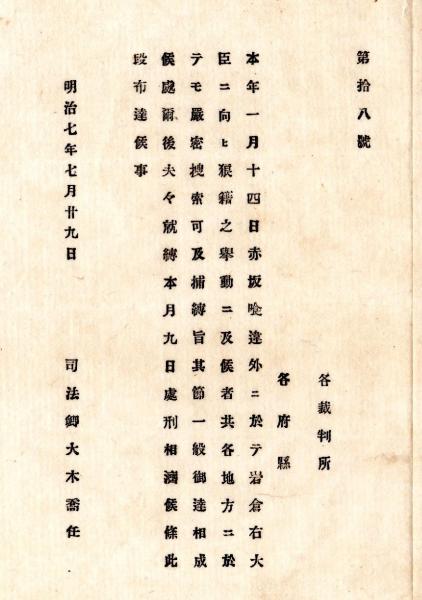 第拾八號
各裁判所
各府縣
本年一月十四日赤坂喰違外ニ於テ岩倉右大
臣ニ向ヒ狼籍之擧動ニ及候者共各地方ニ於
テモ嚴密搜索可及捕縛旨其節一般御達相成
候處爾後夫々就縛本月九日處刑相濟候條此
段布達候事
明治七年七月廿九日
司法卿大木喬任